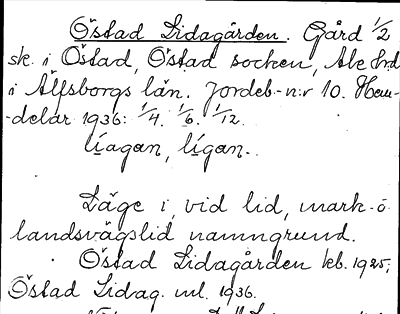 Östad Lidagården. Gård 1/2
sk. i Östad, Östad socken, Ale hrd
i Älfsborgs län. Jordeb.-n:r 10. Hem-
-delar 1936: 1/4. 1/6. 1/12.
líagan, lígan.
Läge i, vid lid, mark- o.
landsvägslid namngrund.
Östad Lidagården kb. 1925;
Östad Lidag. ml. 1936.